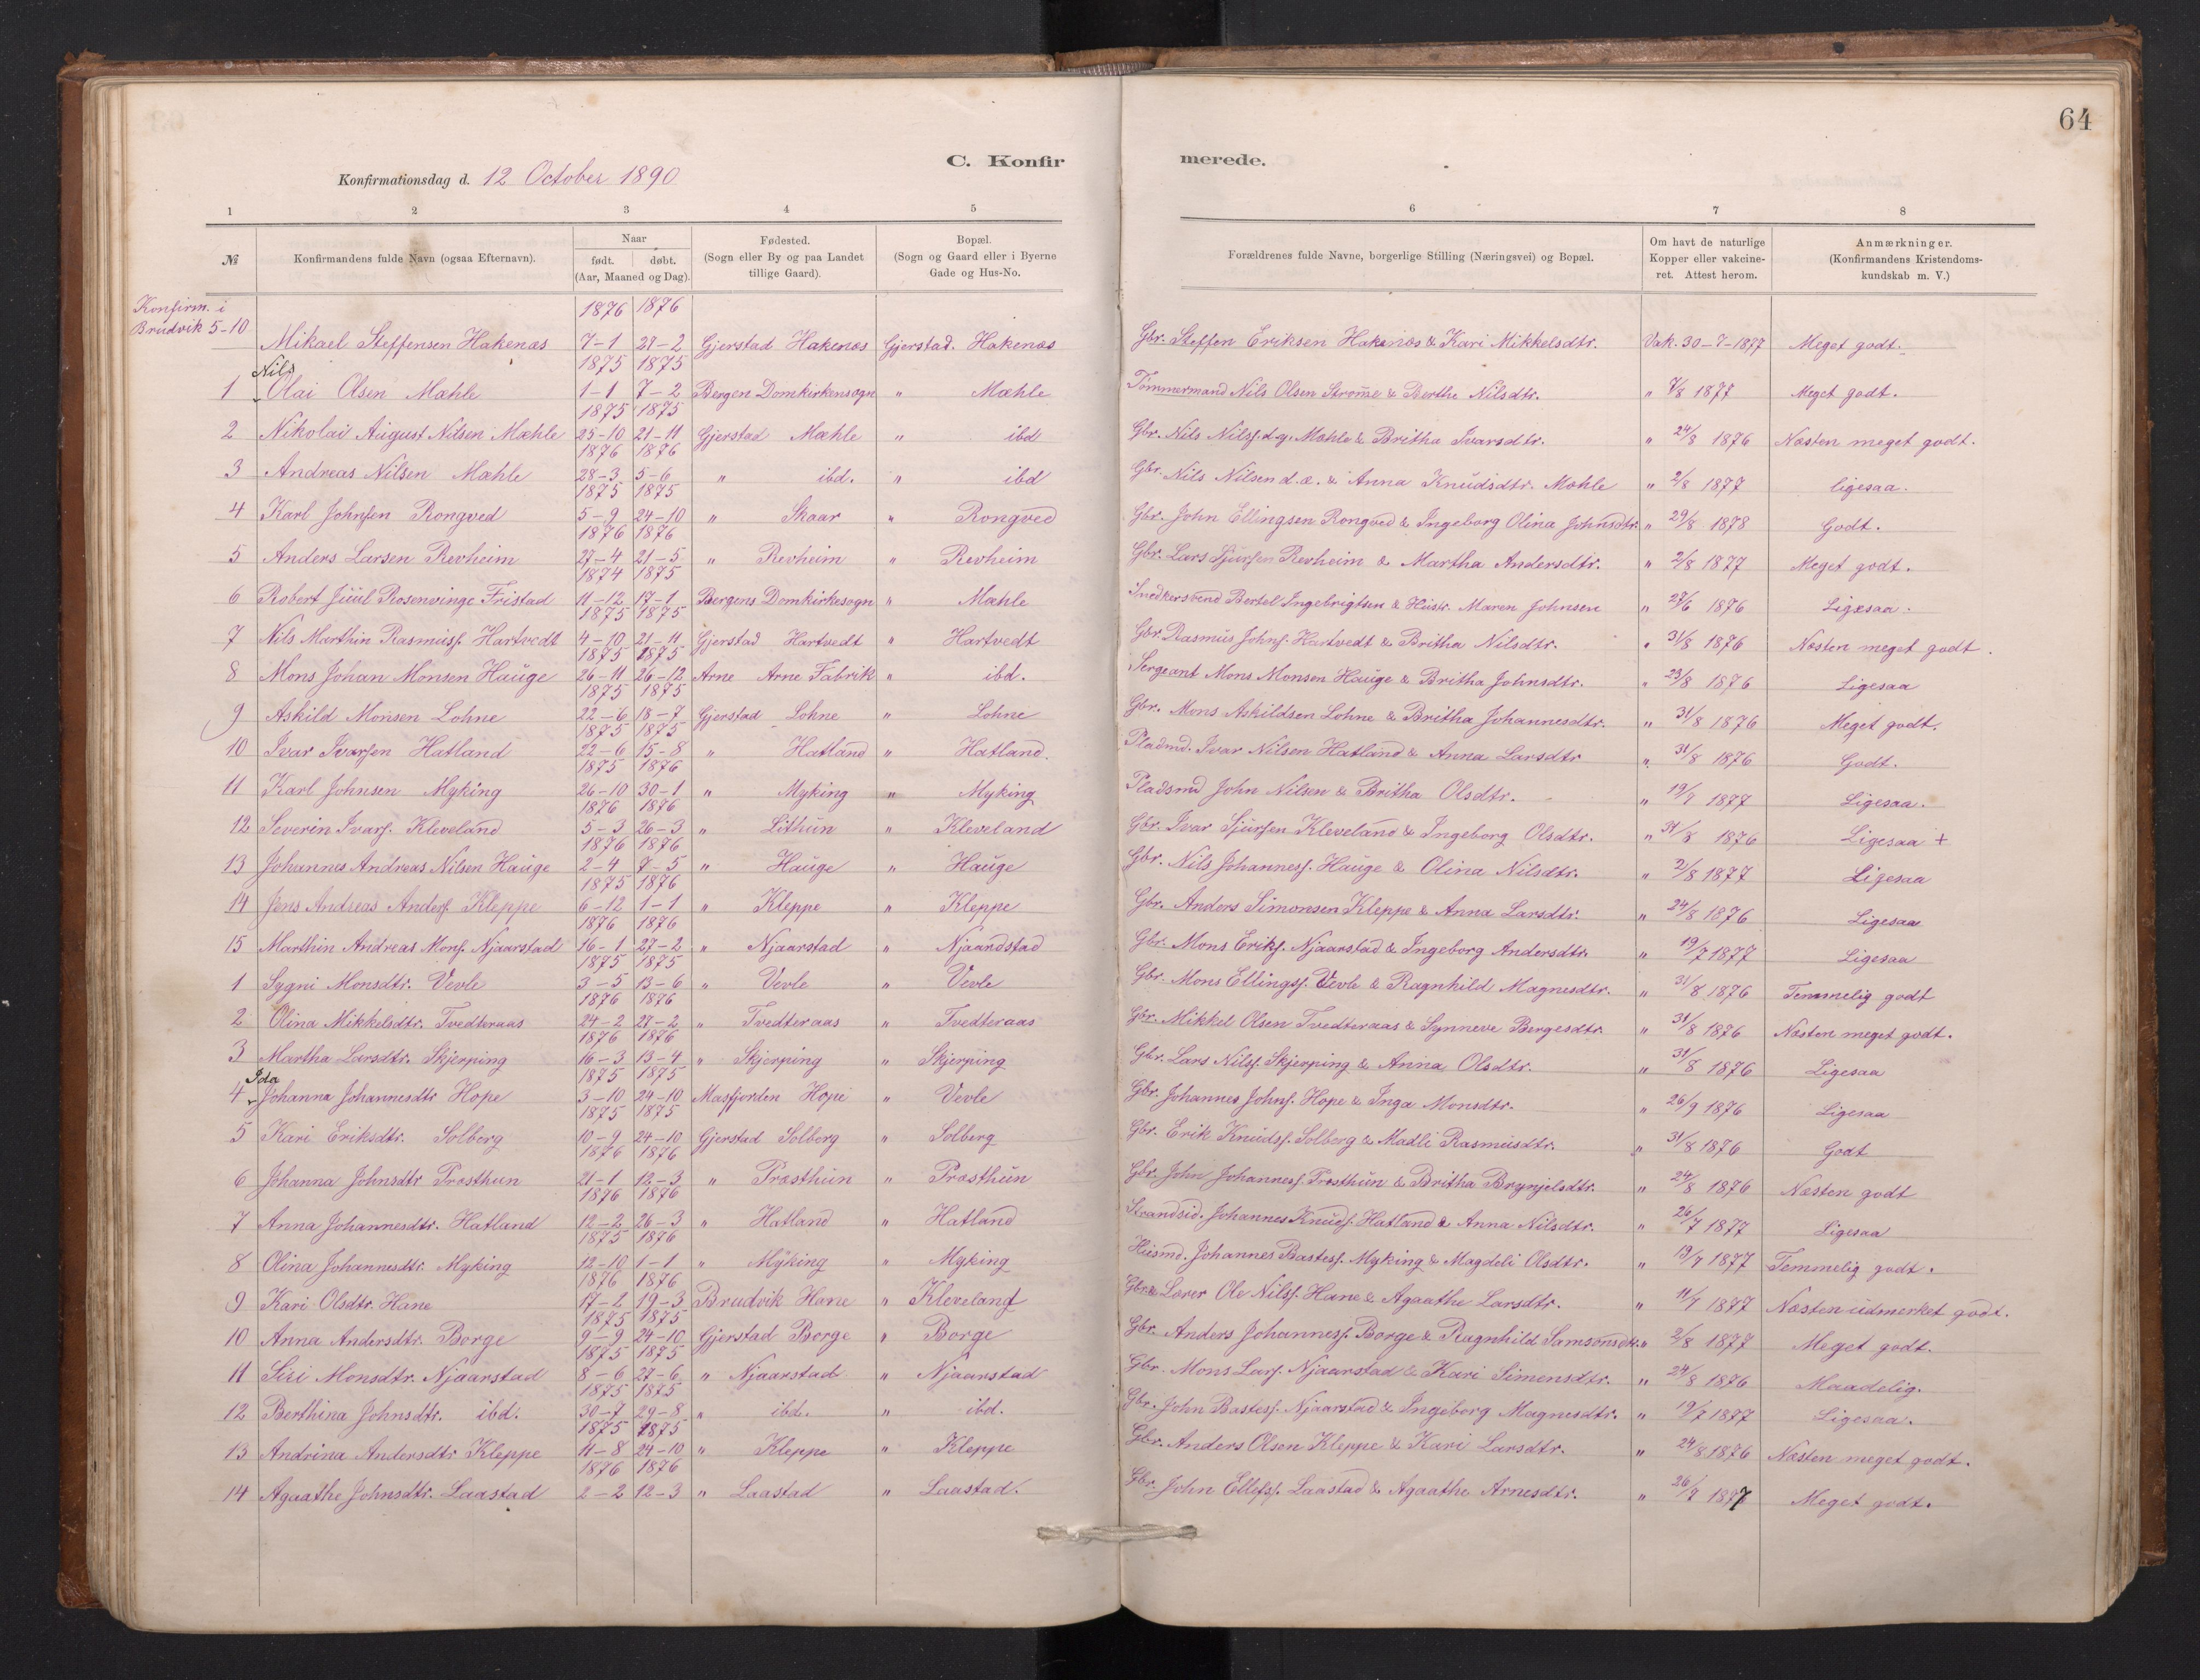 64
C. Konfirmerede.
Konfirmationsdag d. 12 October 1890
1 2 3 4 5 6 7 8
№ Konfirmandens fulde Navn (ogsaa Efternavn). Naar født. døbt. (Aar, Maaned og Dag). Fødested. (Sogn eller By og paa Landet tillige Gaard). Bopæl. (Sogn og Gaard eller i Byerne Gade og Hus-No. Forældrenes fulde Navne, borgerlige Stilling (Næringsvei) og Bopæl. Om havt de naturlige Kopper eller vakcineret. Attest herom. Anmærkninger. (Konfirmandens Kristendomskundskab m. V.)
Konfirm. i Brudvik 5-10
1876 1876
Mikael Steffensen Hakenæs 7-1 28-2 Gjerstad Hakenæs Gjerstad. Hakenæs Gbr. Steffen Eriksen Hakenæs & Kari Mikkelsdtr. Vak. 30-7-1877 Meget godt.
1875 1875
Nils
1 Olai Olsen Mæhle 1-1 7-2 Bergen Domkirkensogn " Mæhle Tømmermand Nils Olsen Strømme & Berthe Nilsdtr. " 7/8 1877 Meget godt.
1875 1875
2 Nikolai August Nilsen Mæhle 25-10 21-11 Gjerstad Mæhle " ibd Gbr. Nils Nilss. d.y. Mæhle & Britha Ivarsdtr. " 24/8 1876 Næsten meget godt.
1876 1876
3 Andreas Nilsen Mæhle 28-3 5-6 " ibd. " ibd Gbr. Nils Nilsen d.æ. & Anna Knudsdtr. Mæhle " 2/8 1877 ligesaa.
1875 1875
4 Karl Johnsen Rongved 5-9 24-10 " Skaar " Rongved Gbr. John Ellingsen Rongved & Ingeborg Olina Johnsdtr. " 29/8 1878 Godt.
1876 1876
5 Anders Larsen Revheim 27-4 21-5 " Revheim " Revheim Gbr. Lars Sjursen Revheim & Martha Andersdtr. " 2/8 1877 Meget godt.
1874 1875
6 Robert Juul Rosenvinge Fristad 11-12 17-1 Bergens Domkirkesogn " Mæhle Snedkersvend Bertel Ingebrigtsen & Hustr. Maren Johnsen " 27/6 1876 Ligesaa.
1875 1875
7 Nils Marthin Rasmuss. Hartvedt 4-10 21-11 Gjerstad Hartvedt " Hartvedt Gbr. Rasmus Johns. Hartvedt & Britha Nilsdtr. " 31/8 1876 Næsten meget godt.
1875 1875
8 Mons Johan Monsen Hauge 26-11 26-12 Arne Arne Fabrik " ibd. Sergeant Mons Monsen Hauge & Britha Johnsdtr. " 23/8 1876 Ligesaa
1875 1875
9 Askild Monsen Lohne 22-6 18-7 Gjerstad Lohne " Lohne Gbr. Mons Askildsen Lohne & Britha Johannesdtr. " 31/8 1876 Meget godt.
1875 1875
10 Ivar Ivarsen Hatland 22-6 15-8 " Hatland " Hatland. Pladsmd. Ivar Nilsen Hatland & Anna Larsdtr " 31/8 1876 Godt.
1875 1876
11 Karl Johnsen Myking 26-10 30-1 " Myking " Myking Pladsmd John Nilsen & Britha Olsdtr. " 19/7 1877 Ligesaa.
1876 1876
12 Severin Ivars. Kleveland 5-3 26-3 " Lithun " Kleveland Gbr. Ivar Sjursen Kleveland & Ingeborg Olsdtr. " 31/8 1876 Ligesaa +
1876 1876
13 Johannes Andreas Nilsen Hauge 2-4 7-5 " Hauge " Hauge Gbr. Nils Johanness. Hauge & Olina Nilsdtr. " 2/8 1877 Ligesaa
1875 1876
14 Jens Andreas Anders. Kleppe 6-12 1-1 " Kleppe " Kleppe Gbr. Anders Simonsen Kleppe & Anna Larsdtr. " 24/8 1876 Ligesaa
1876 1876
15 Marthin Andreas Mons. Njaarstad 16-1 27-2 " Njaarstad " Njaardstad Gbr. Mons Eriks. Njaarstad & Ingeborg Andersdtr. " 19/7 1877 Ligesaa
1875 1875
1 Sygni Monsdtr. Vevle 3-5 13-6 " Vevle " Vevle Gbr. Mons Ellings. Vevle & Ragnhild Magnesdtr. " 31/8 1876 Temmelig godt
1876 1876
2 Olina Mikkelsdtr. Tvedteraas 24-2 27-2 " Tvedteraas " Tvedteraas Gbr. Mikkel Olsen Tvedteraas & Synneve Bergesdtr. " 31/8 1876 Næsten meget godt.
1876 1876
3 Martha Larsdtr. Skjerping 16-3 13-4 " Skjerping " Skjerping Gbr. Lars Nilss. Skjerping & Anna Olsdtr. " 31/8 1876 Ligesaa
1875 1875
Ida
4 Johanna Johannesdtr Hope 3-10 24-10 Masfjorden Hope " Vevle Gbr. Johannes Johns. Hope & Inga Monsdtr. " 26/9 1876 Ligesaa
1875 1875
5 Kari Eriksdtr. Solberg 10-9 24-10 Gjerstad Solberg " Solberg Gbr. Erik Knuds. Solberg & Madli Rasmusdtr. " 31/8 1876 Godt
1876 1876
6 Johanna Johnsdtr Præsthun 21-1 12-3 " Præsthun " Præsthun Gbr. John Johanness. Præsthun & Britha Brynjelsdtr. " 24/8 1876 Næsten godt
1876 1876
7 Anna Johannesdtr. Hatland 12-2 26-3 " Hatland " Hatland Strandsid. Johannes Knuds. Hatland & Anna Nilsdtr. " 26/7 1877 Ligesaa
1875 1876
8 Olina Johannesdtr. Myking 12-10 1-1 " Myking " Myking Husmd. Johannes Bastes. Myking & Magdeli Olsdtr. " 19/7 1877 Temmelig godt.
1876 1876
9 Kari Olsdtr. Hane 17-2 19-3 Brudvik Hane " Kleveland Gbr. & Lærer Ole Nilss. Hane & Agaathe Larsdtr. " 11/7 1877 Næsten udmerket godt.
1875 1875
10 Anna Andersdtr. Borge 9-9 24-10 Gjerstad Borge " Borge Gbr. Anders Johanness. Borge & Ragnhild Samsonsdtr. " 2/8 1877 Meget godt.
1875 1875
11 Siri Monsdtr. Njaarstad 8-6 27-6 " Njaarstad " Njaarstad Gbr. Mons Lars. Njaarstad & Kari Simensdtr. " 24/8 1876 Maadelig.
1875 1875
12 Berthina Johnsdtr. ibd. 30-7 29-8 " ibd. " ibd. Gbr. John Bastes. Njaarstad & Ingeborg Magnesdtr. " 19/7 1877 Ligesaa.
1875 1875
13 Andrina Andersdtr Kleppe 11-8 24-10 " Kleppe " Kleppe Gbr. Anders Olsen Kleppe & Kari Larsdtr. " 24/8 1876 Næsten meget godt.
1876 1876
14 Agaathe Johnsdtr. Laastad 2-2 12-3 " Laastad " Laastad. Gbr. John Ellefs. Laastad & Agaathe Arnesdtr. " 26/7 1877 Meget godt.